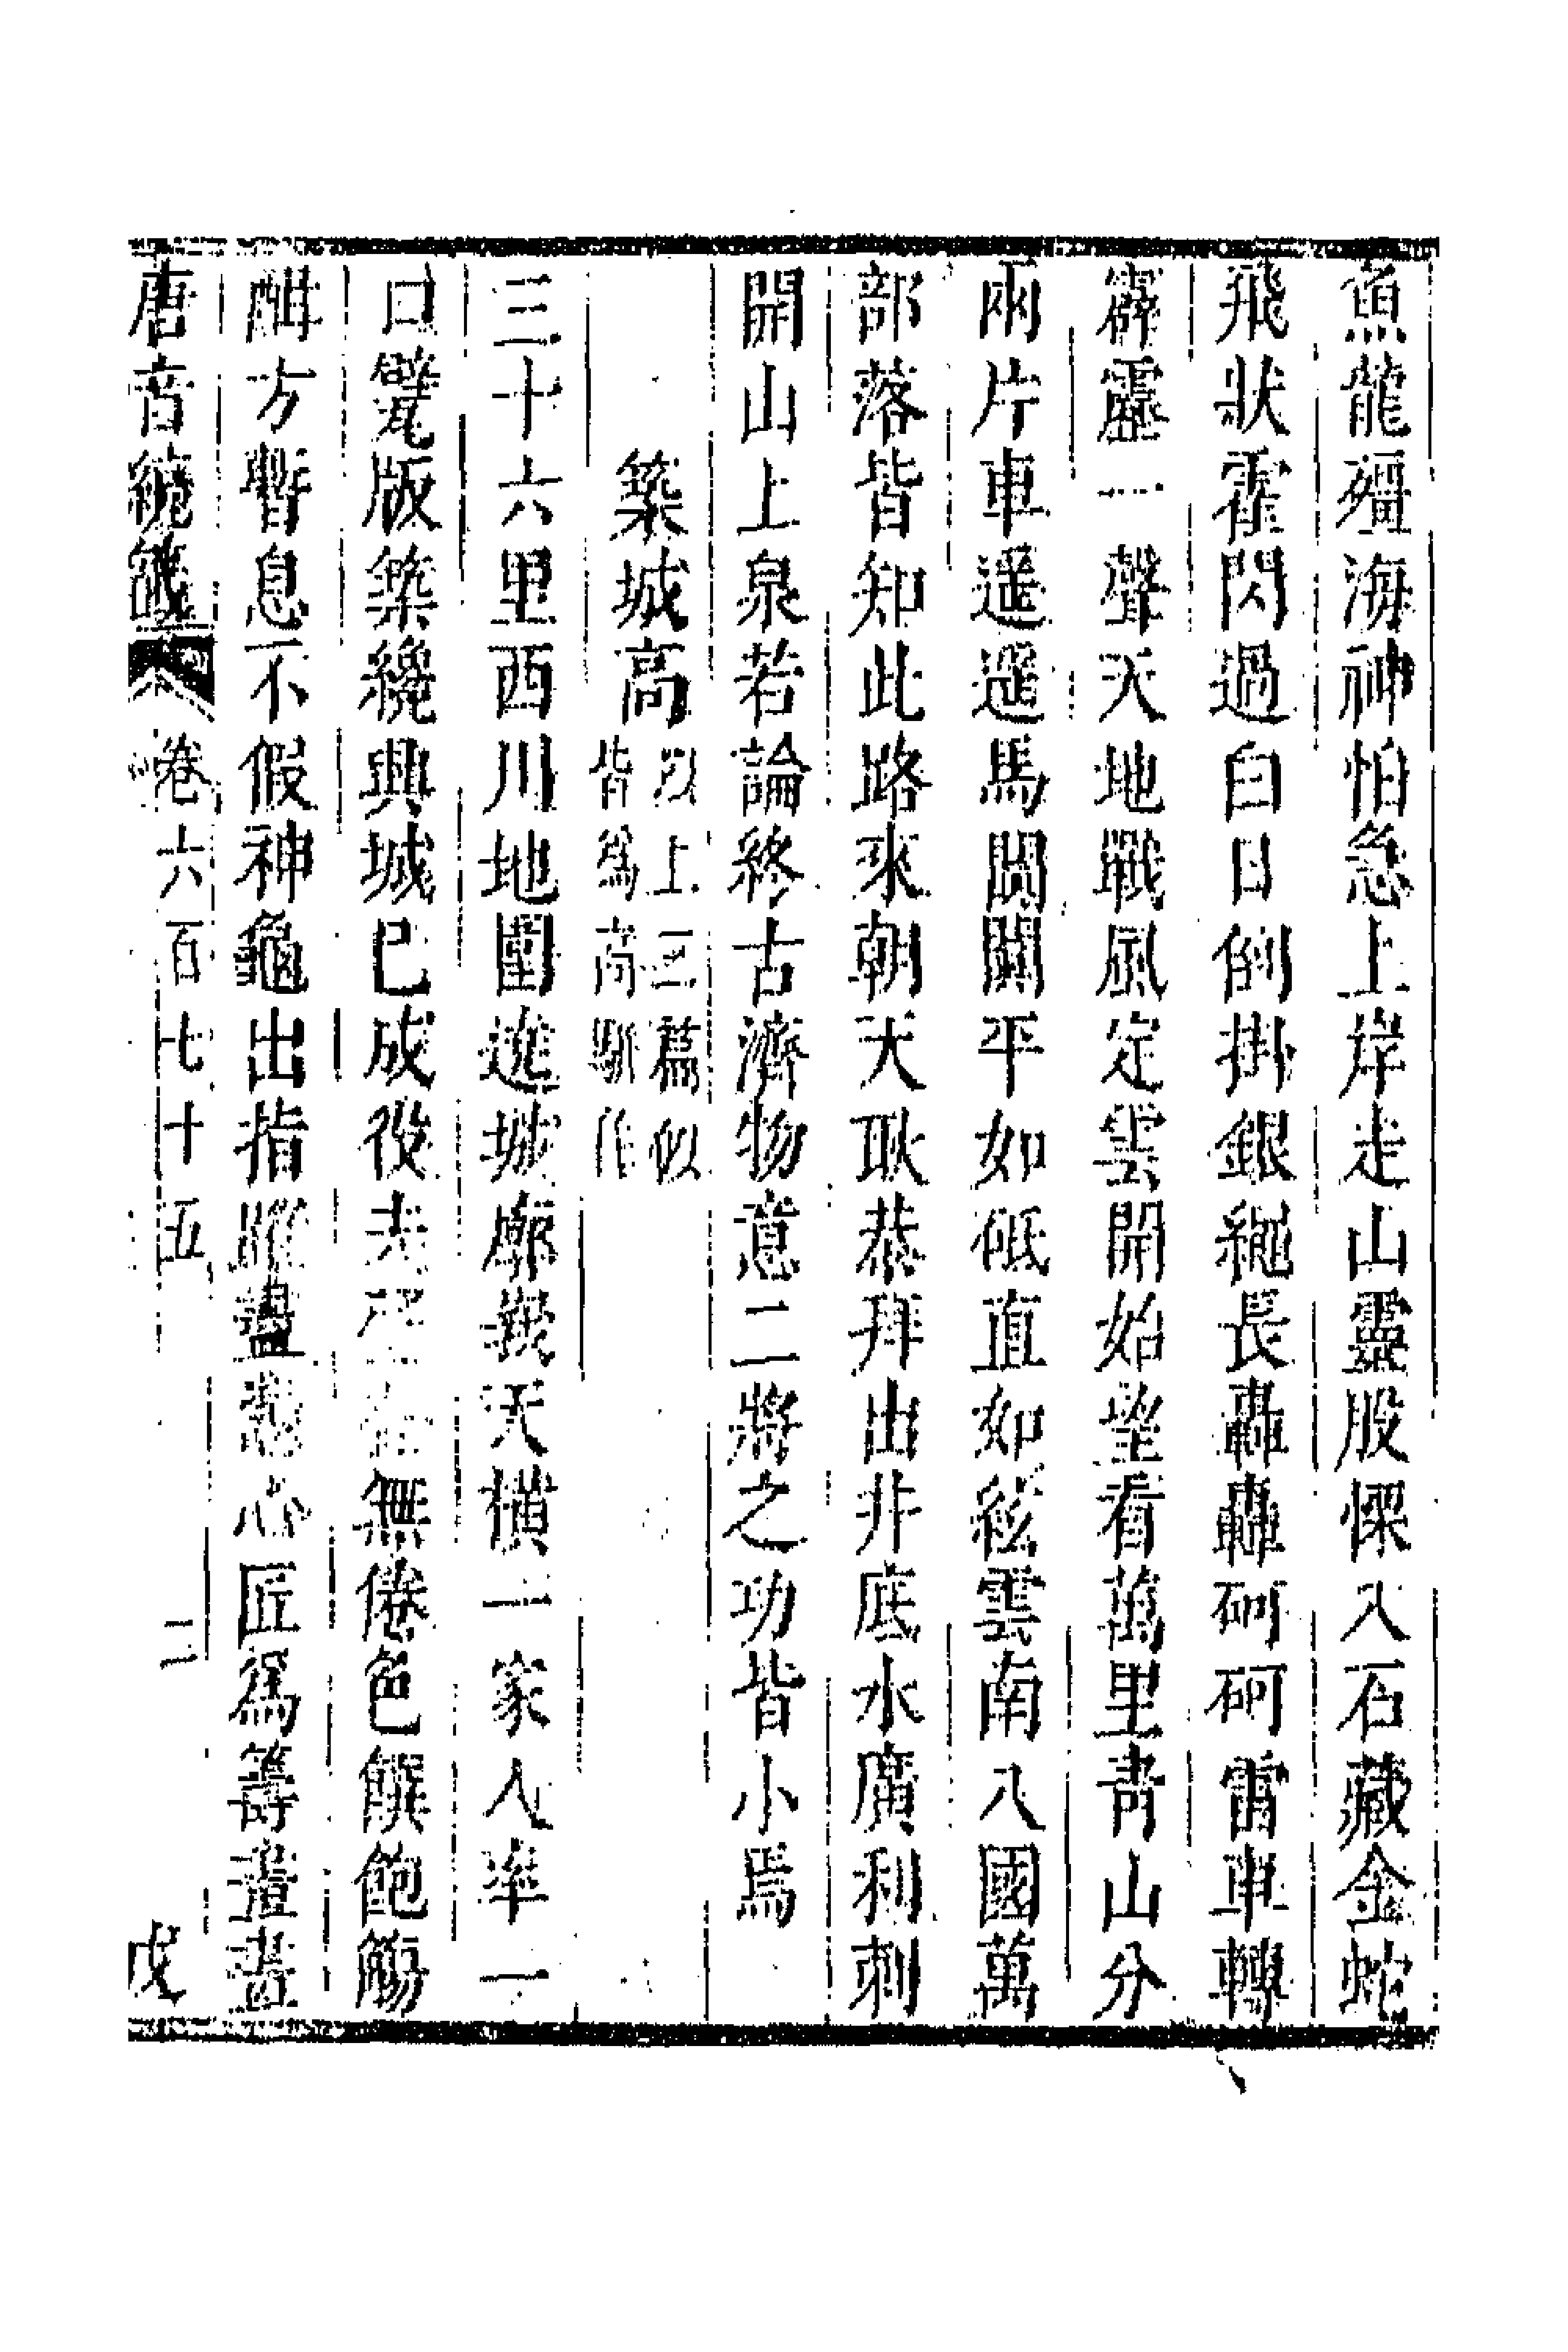 魚龍殭海神怕急上岸走山靈股慄入石藏金蛇
飛狀霍閃過白日倒掛銀繩長轟轟砢砢雷車轉
霹靂一聲天地戰風定雲開始望看萬里青山分
兩片車遥遥馬闐闐平如砥直如絃雲南八國萬
部落皆知此路來朝天耿恭拜出井底水廣利刺
開山上泉若論終古濟物意二將之功皆小焉
築城高
以上三篇似
皆爲高駢作
三十六里西川地圍遶城廓峩天橫一家人率一
口甓版築纔興城已成役夫無倦色饌飽觴
酣方暫息不假神龜出指蹤盡心匠爲籌畫畫
唐音統籤 卷六百七十五 二 戊